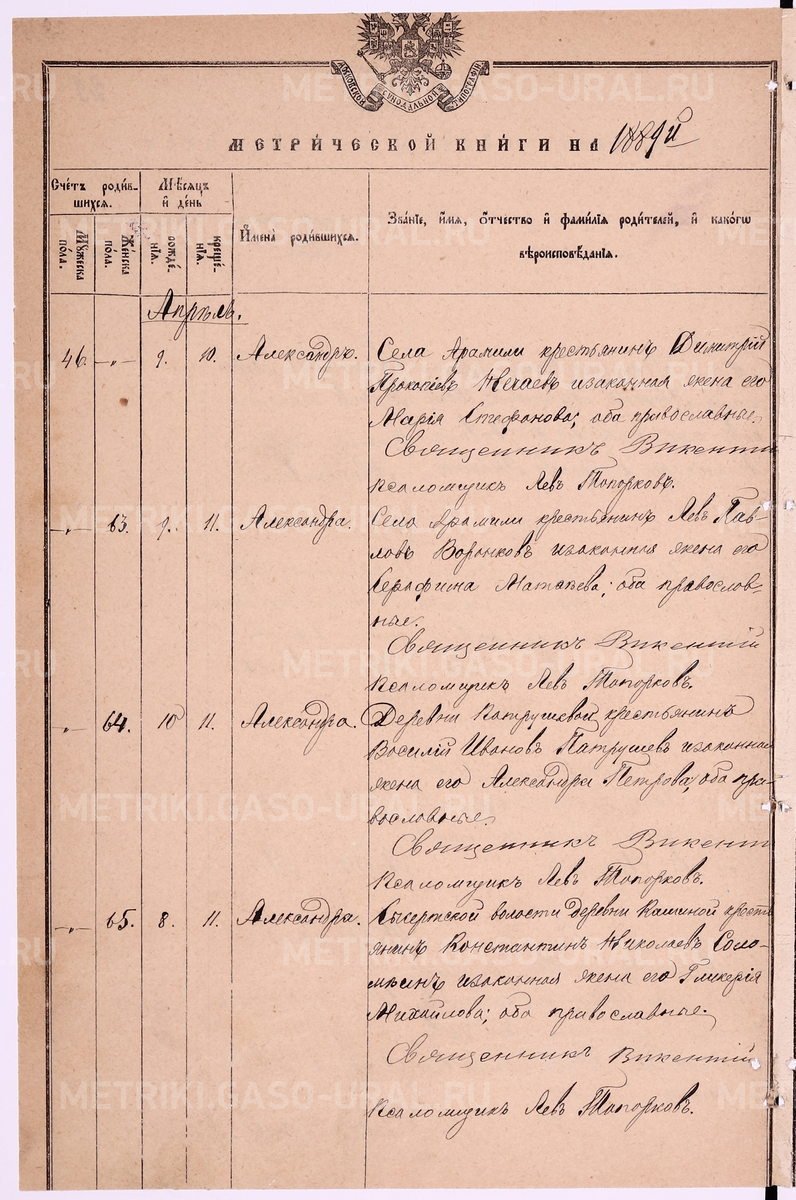 МОСКОВСКОЙ СѴНОДАЛЬНОЙ ТИПОГРАФІИ
МЕТРИ́ЧЕСКОЙ КНИ́ГИ НА 1889й
Сче́тъ роди́в-
шихся.
Мѣ́сяцъ
и де́нь
Имена̀ роди́вшихся.
Зва́нїе, и́мя, ѻ́тчество и фами́лїя роди́телей, и како́гѡ
вѣроисповѣ́данїя.
Мꙋ́жеска
по́ла.
Же́нска
по́ла.
рожде́-
нїя.
креще́-
нїя.
Апрѣль.
46. —„— 9. 10. Александръ. Села Арамили крестьянинъ Димитрій
Прокопіевъ Нечаевъ изаконная жена его
Марія Стефанова; оба православные.
Священникъ Викенті
Псаломщикъ Левъ Топорковъ.
—„— 63. 9. 11. Александра. Села Арамили крестьянинъ Левъ Пав-
ловъ Воронковъ изаконная жена его
Серафина Матвѣева; оба православ-
ные.
Священникъ Викентій
Псаломщикъ Левъ Топорковъ.
—„— 64. 10 11. Александра. Деревни Патрушевой крестьянинъ
Василій Ивановъ Патрушевъ изаконная
жена его Александра Петрова; оба пра-
вославные.
Священникъ Викенті
Псаломщикъ Левъ Топорковъ.
—„— 65. 8. 11. Александра. Сысертской волости Деревни Кашиной кресть
янинъ Константинъ Николаевъ Соло-
мѣинъ изаконная жена его Гликерія
Михайлова; оба православные.
Священникъ Викентій
Псаломщикъ Левъ Топорковъ.
METRIKI.GASO-URAL.RU